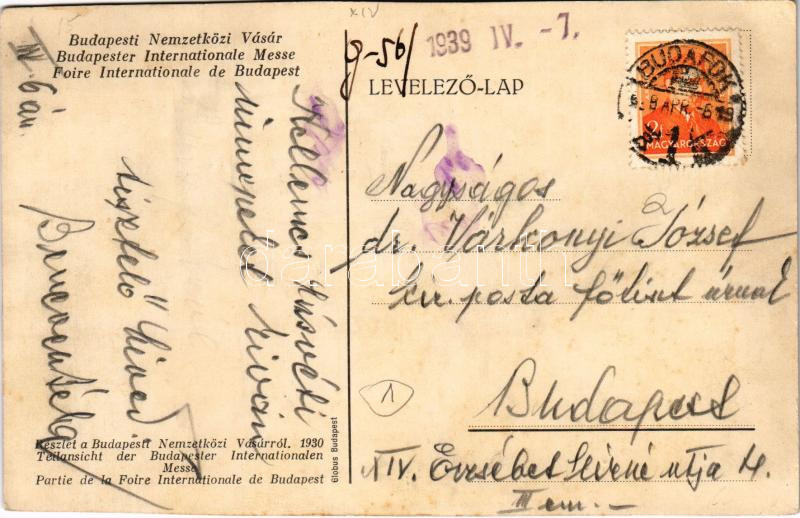 Budapesti Nemzetközi Vásár
Budapester Internationale Messe
Foire Internationale de Budapest
XIV
1939 IV. -7.
LEVELEZŐ-LAP
BUDAFOK
MAGYARORSZÁG
IV. 6 án
Kellemes húsvéti
ünnepeket kíván
tisztelő híve
Nagyságos
dr. Várkonyi József
kir. posta főtiszt úrnak
1
Budapest
XIV. Erzsébet királyné útja 4.
III em.
darabanth
Részlet a Budapesti Nemzetközi Vásárról. 1930
Teilansicht der Budapester Internationalen
Messe
Partie de la Foire Internationale de Budapest
Globus Budapest